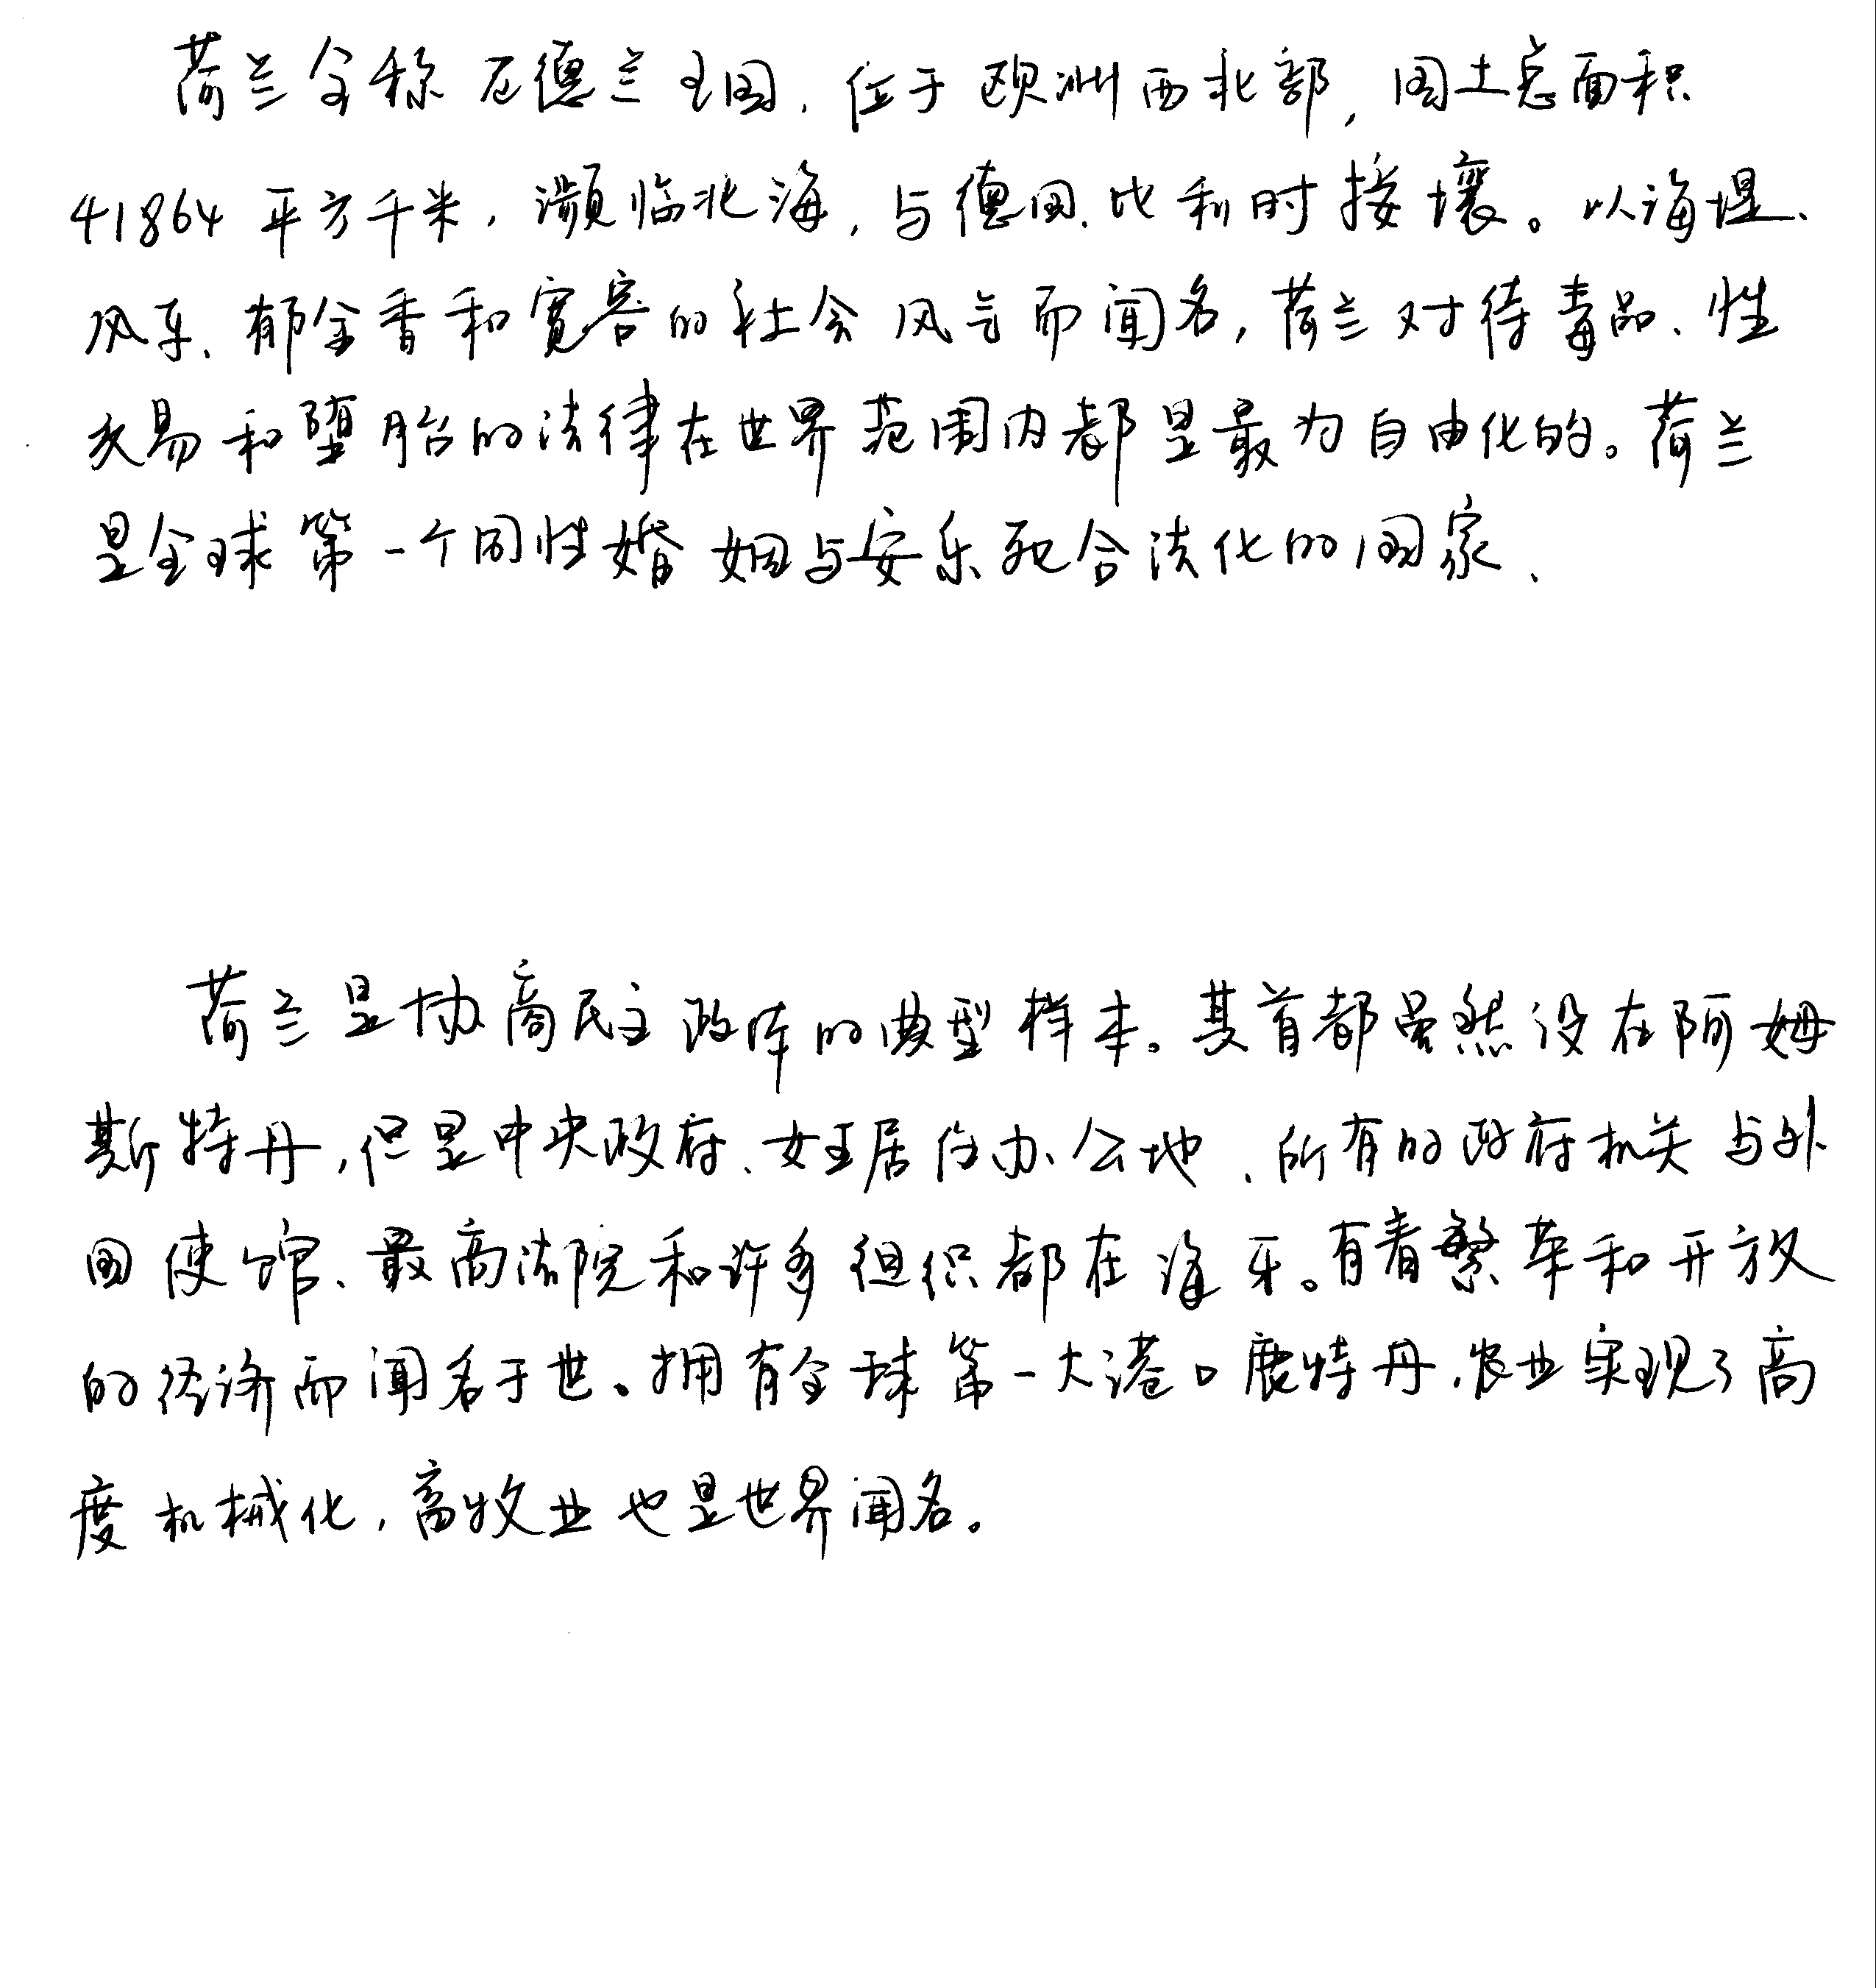 荷兰全称尼德兰王国,位于欧洲西北部,国土总面积
41864平方千米,濒临北海,与德国、比利时接壤。以海堤、
风车、郁金香和宽容的社会风气而闻名,荷兰对待毒品、性
交易和堕胎的法律在世界范围内都是最为自由化的。荷兰
是全球第一个同性婚姻与安乐死合法化的国家、
荷兰是协商民主政体的典型样本。其首都虽然设在阿姆
斯特丹,但是中央政府、女王居住办公地、所有的政府机关与外
国使馆、最高法院和许多组织都在海牙。有着繁华和开放
的经济而闻名于世。拥有全球第一大港口鹿特丹,农业实现了高
度机械化,畜牧业也是世界闻名。